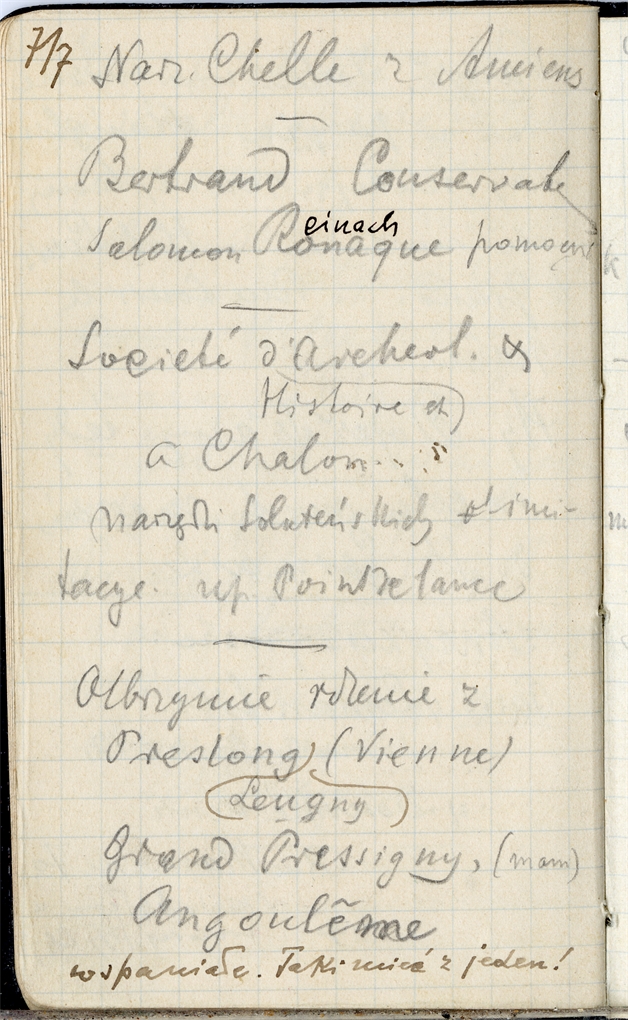 7/7 Narz. Chelle z Amiens
Bertrand Conservate
einach
Salomon Ronaque pomocnik
Societé d'Archeol. &
Histoire et)
a Chalon...
narzędzi Solutreńskich imi-
tacye. np. Pointe de lance
Olbrzymie rdzenie z
Preslong (Vienne)
(Leugny)
Grand Pressigny, (mam)
Angoulême
wspaniałe. Taki mieć z jeden!